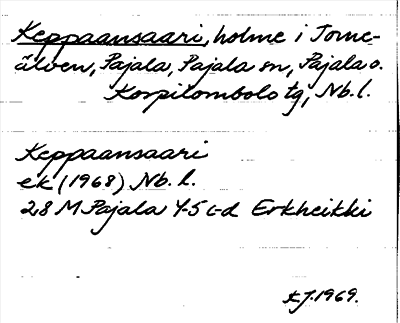 Keppaansaari, holme i Torne-
älven, Pajala, Pajala sn, Pajala o.
Korpilombolo tg, Nb. l.
Keppaansaari
ek (1968) Nb. l.
28 M Pajala 4-5 c-d Erkheikki
KJ. 1969.